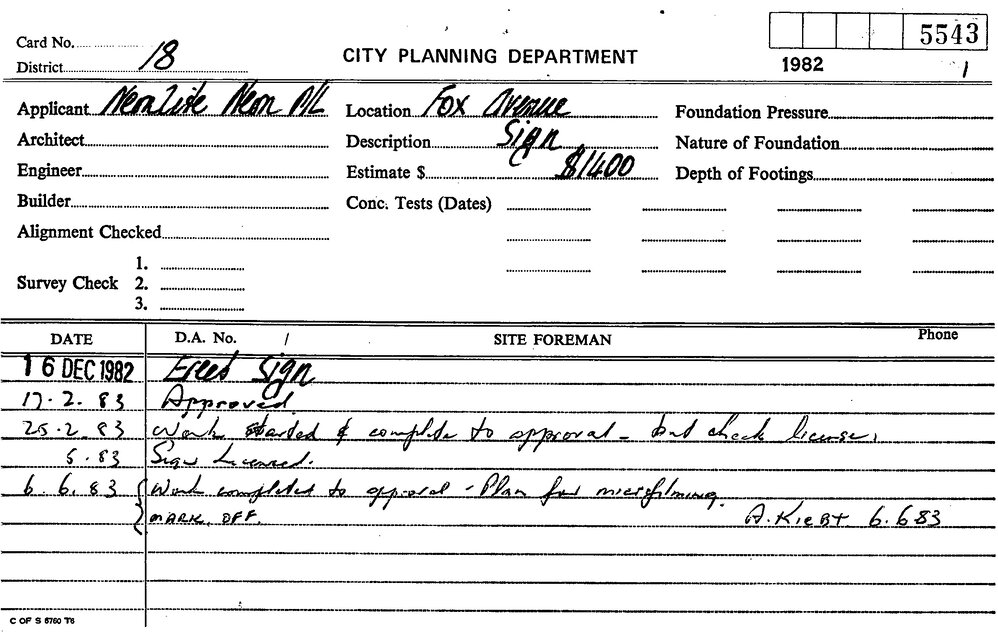 5543
Card No. 18
District
CITY PLANNING DEPARTMENT
1982 1
Applicant Neonlite Neon P/L Location Fox Avenue Foundation Pressure
Architect Description Sign Nature of Foundation
Engineer Estimate $ $1400 Depth of Footings
Builder Conc. Tests (Dates)
Alignment Checked
1.
Survey Check 2.
3.
DATE D.A. No. / SITE FOREMAN Phone
16 DEC 1982 Erect Sign
17.2.83 Approved.
25.2.83 Work started & complete to approval - but check license.
5.83 Sign Licensed.
6.6.83 Work completed to approval - Plan for microfilming.
MARK OFF. 6.6.83
C OF S